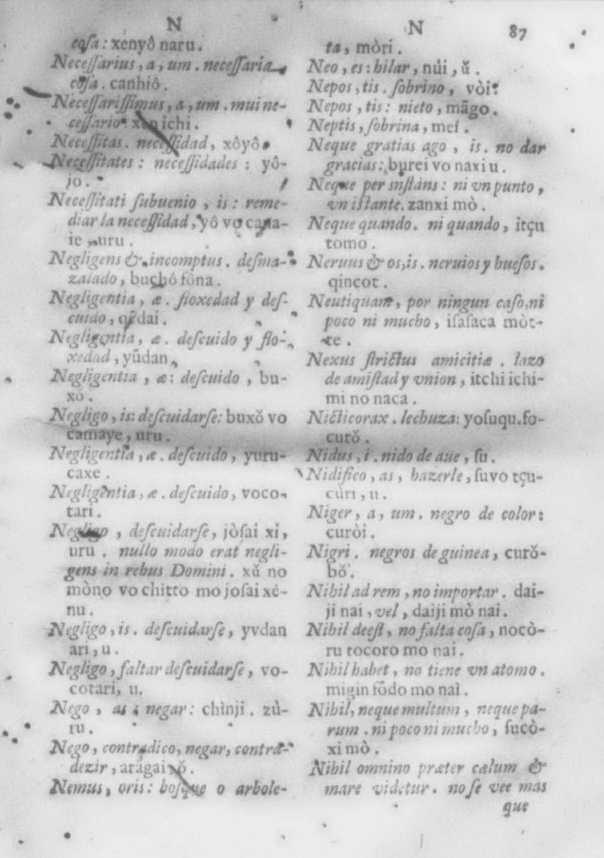 N
cosa: xenyô naru.
Necessarius, a, um. necessaria
cosa. canhiô.
Necessarissimus, a, um. mui ne-
cessario. xen ichi.
Necessitas. necessidad, xôyô.
Necessitates: necessidades: yô-
jo.
Necessitati subuenio, is: reme-
diar la necessidad, yô vo cana-
ie, uru.
Negligens &, incomptus. desma-
zalado, buchôfôna.
Negligentia, æ. floxedad y des-
cuido, qedai.
Negligentia, æ. descuido y flo-
xedad, yûdan,
Negligentia, æ: descuido, bu-
xô.
Negligo, is: descuidarse: buxǒ vo
camaye, uru.
Negligentia, æ. descuido, yuru-
caxe.
Negligentia, æ. descuido, voco-
tari.
Negligo, descuidarse, jòsai xi,
uru. nullo modo erat negli-
gens in rebus Domini. xǔ no
mòno vo chitto mo josai xé-
nu.
Negligo, is. descuidarse, yvdan
ari, u.
Negligo, faltar descuidarse, vo-
cotari, u.
Nego, as: negar: chinji. zù-
ru.
Nego, contradico, negar, contra-
dezir, aragai, ǒ.
Nemus, oris: bosque o arbole-
N 87
ta, mòri.
Neo, es: hilar, núi, ǔ.
Nepos, tis. sobrino, vòi.
Nepos, tis: nieto, māgo.
Neptis, sobrina, mei.
Neque gratias ago, is. no dar
gracias: burei vo naxi u.
Neque per instâns: ni vn punto,
vn istante. zanxi mò.
Neque quando. ni quando, itçu
tomo.
Neruus & os, is. neruios y huesos.
qincot.
Neutiquam, por ningun caso, ni
poco ni mucho, isasaca mòt-
te.
Nexus strictus amicitiæ. lazo
de amistad y vnion, itchi ichi-
mi no naca.
Nicticorax. lechuza: yosuqu. fo-
curǒ.
Nidus, i. nido de aue, su.
Nidifico, as, hazerle, suvo tçu-
curi, u.
Niger, a, um. negro de color:
curòi.
Nigri. negros de guinea, curǒ-
bǒ.
Nihil ad rem, no importar. dai-
ji nai, vel, daiji mò nai.
Nihil deest, no falta cosa, nocò-
ru tocoro mo nai.
Nihil habet, no tiene vn atomo.
migin fodo mo nai.
Nihil, neque multum, neque pa-
rum. ni poco ni mucho, sucò-
xi mò.
Nihil omnino præter cælum &
mare videtur. no se vee mas
que